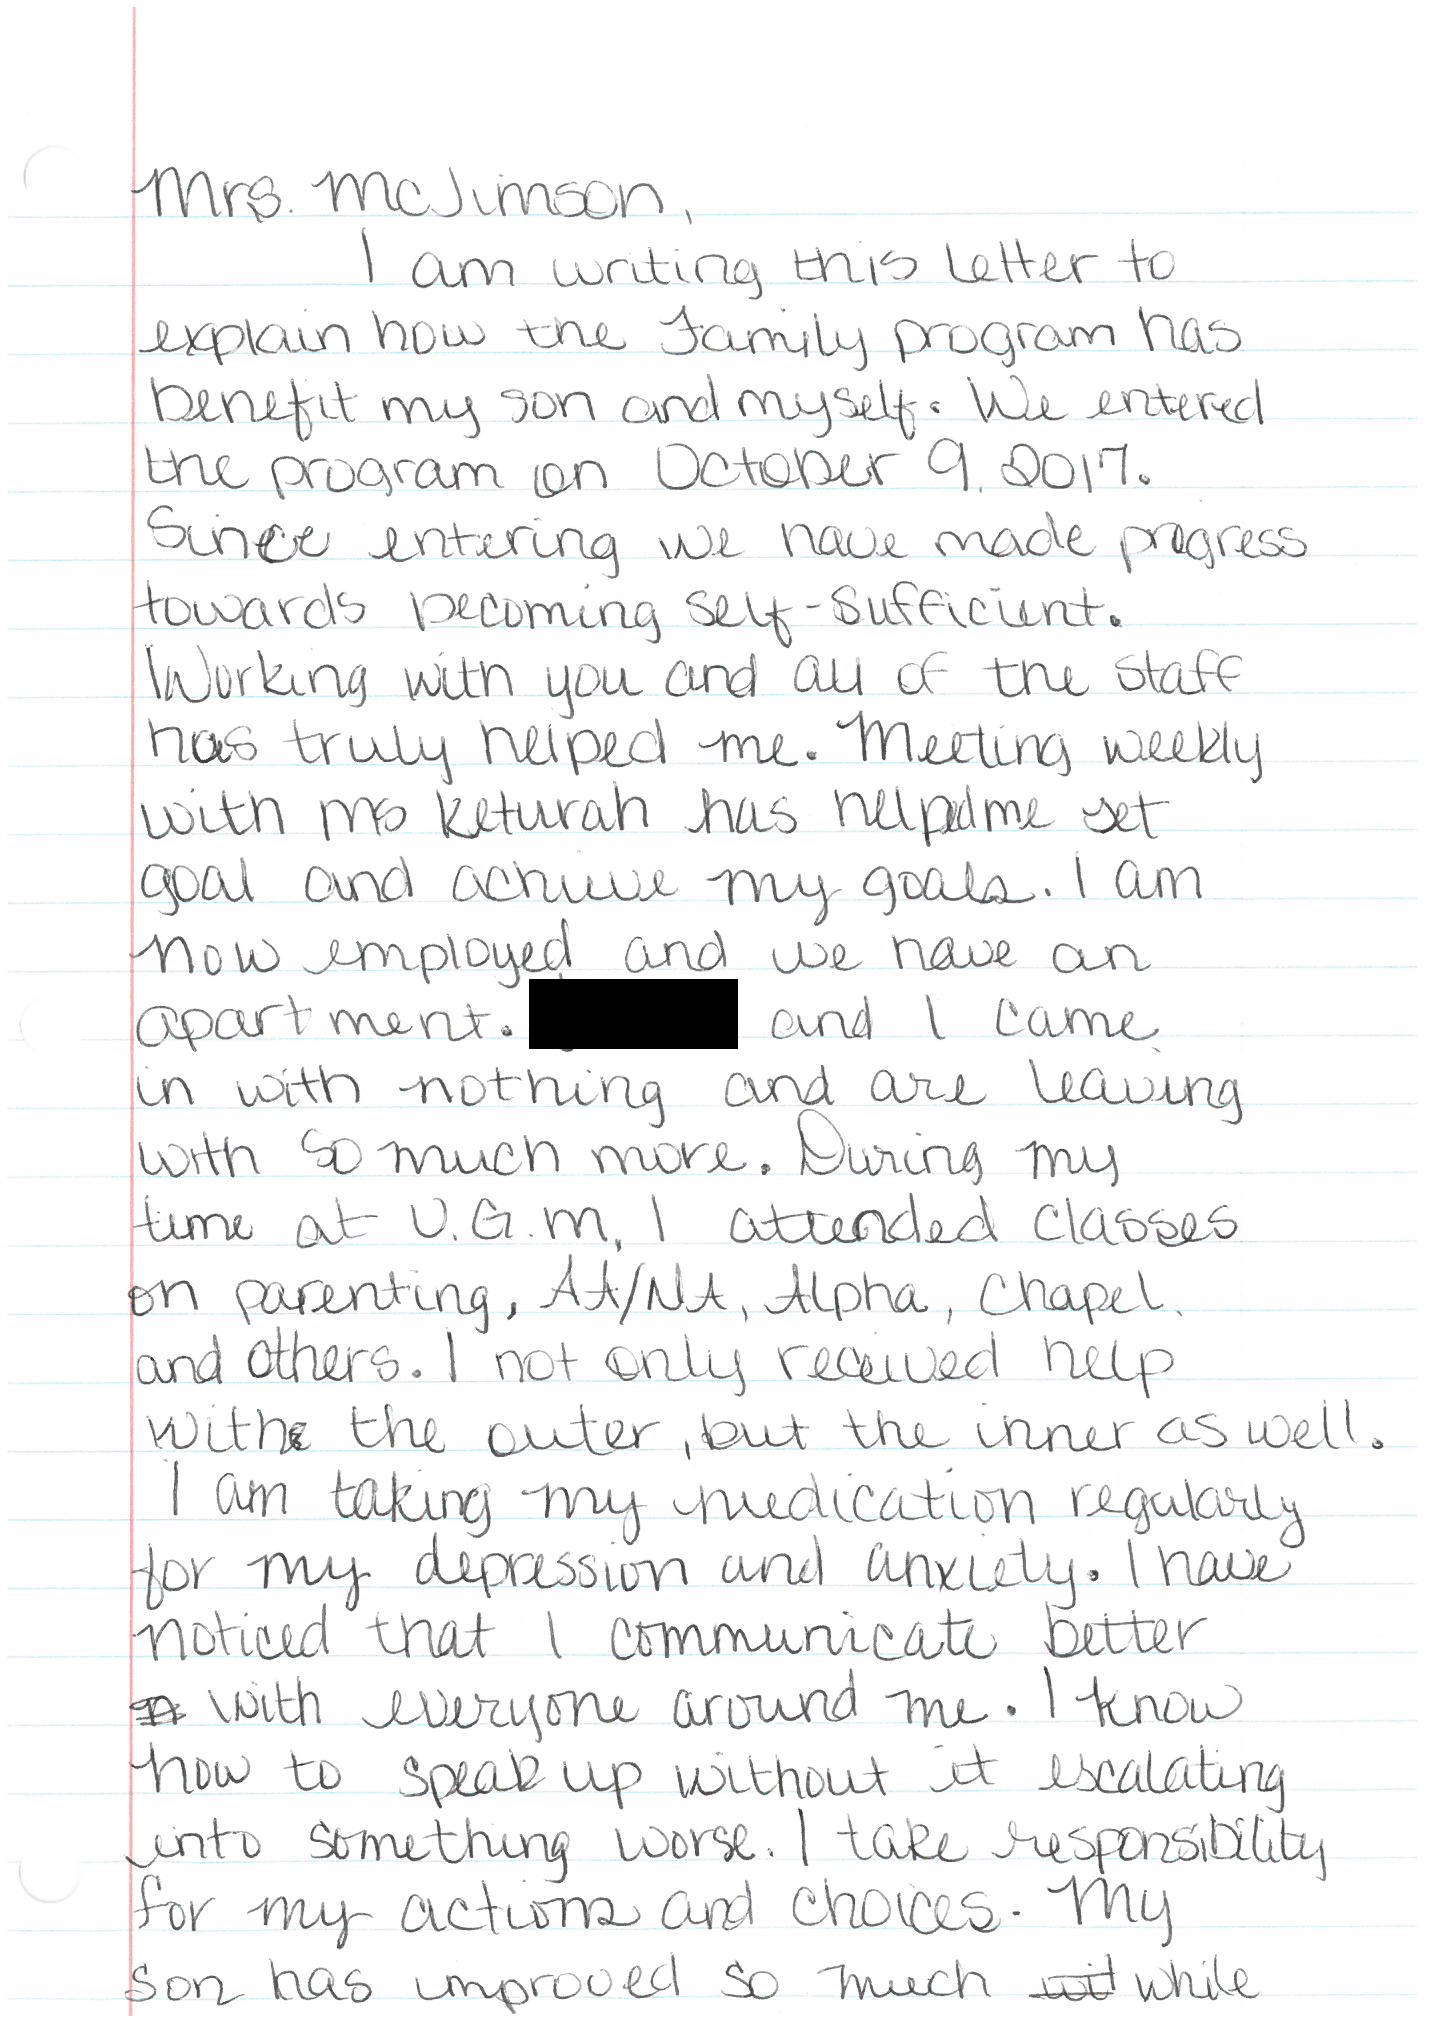 Mrs. McJimson,
I am writing this letter to
explain how the Family program has
benefit my son and myself. We entered
the program on October 9, 2017.
Since entering we have made progress
towards becoming self-sufficient.
Working with you and all of the staff
has truly helped me. Meeting weekly
with Ms Keturah has helped me set
goal and achieve my goals. I am
now employed and we have an
apartment. and I came
in with nothing and are leaving
with so much more. During my
time at U.G.M, I attended classes
on parenting, AA/NA, Alpha, Chapel,
and others. I not only received help
with the outer, but the inner as well.
I am taking my medication regularly
for my depression and anxiety. I have
noticed that I communicate better
with everyone around me. I know
how to speak up without it escalating
into something worse. I take responsibility
for my actions and choices. My
son has improved so much wit while